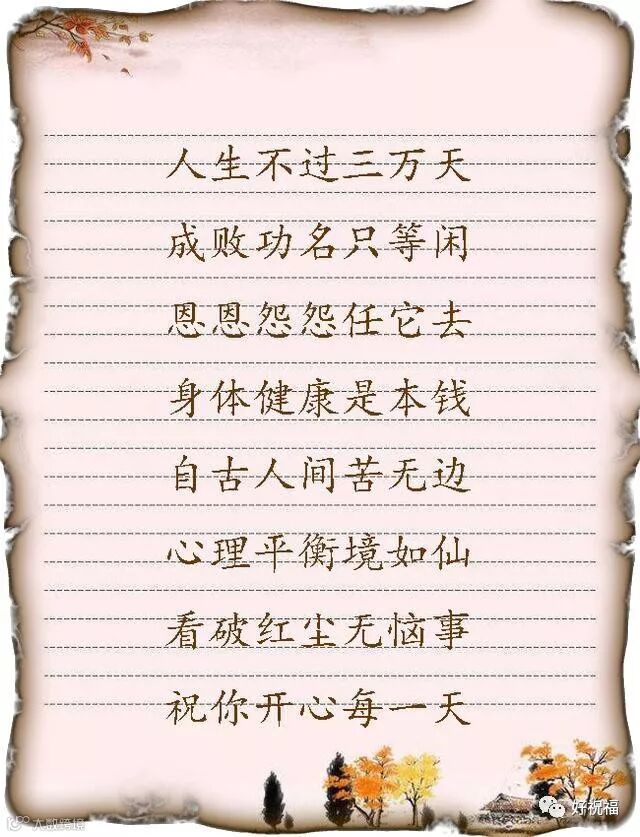 人生不过三万天
成败功名只等闲
恩恩怨怨任它去
身体健康是本钱
自古人间苦无边
心理平衡境如仙
看破红尘无恼事
祝你开心每一天
好祝福
大数跨境